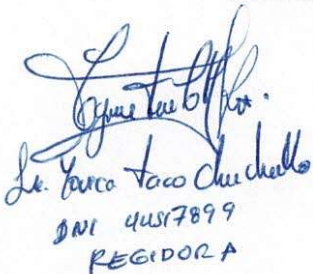 Lic. Yovica Taco Chuchullo
DNI 44517899
REGIDORA